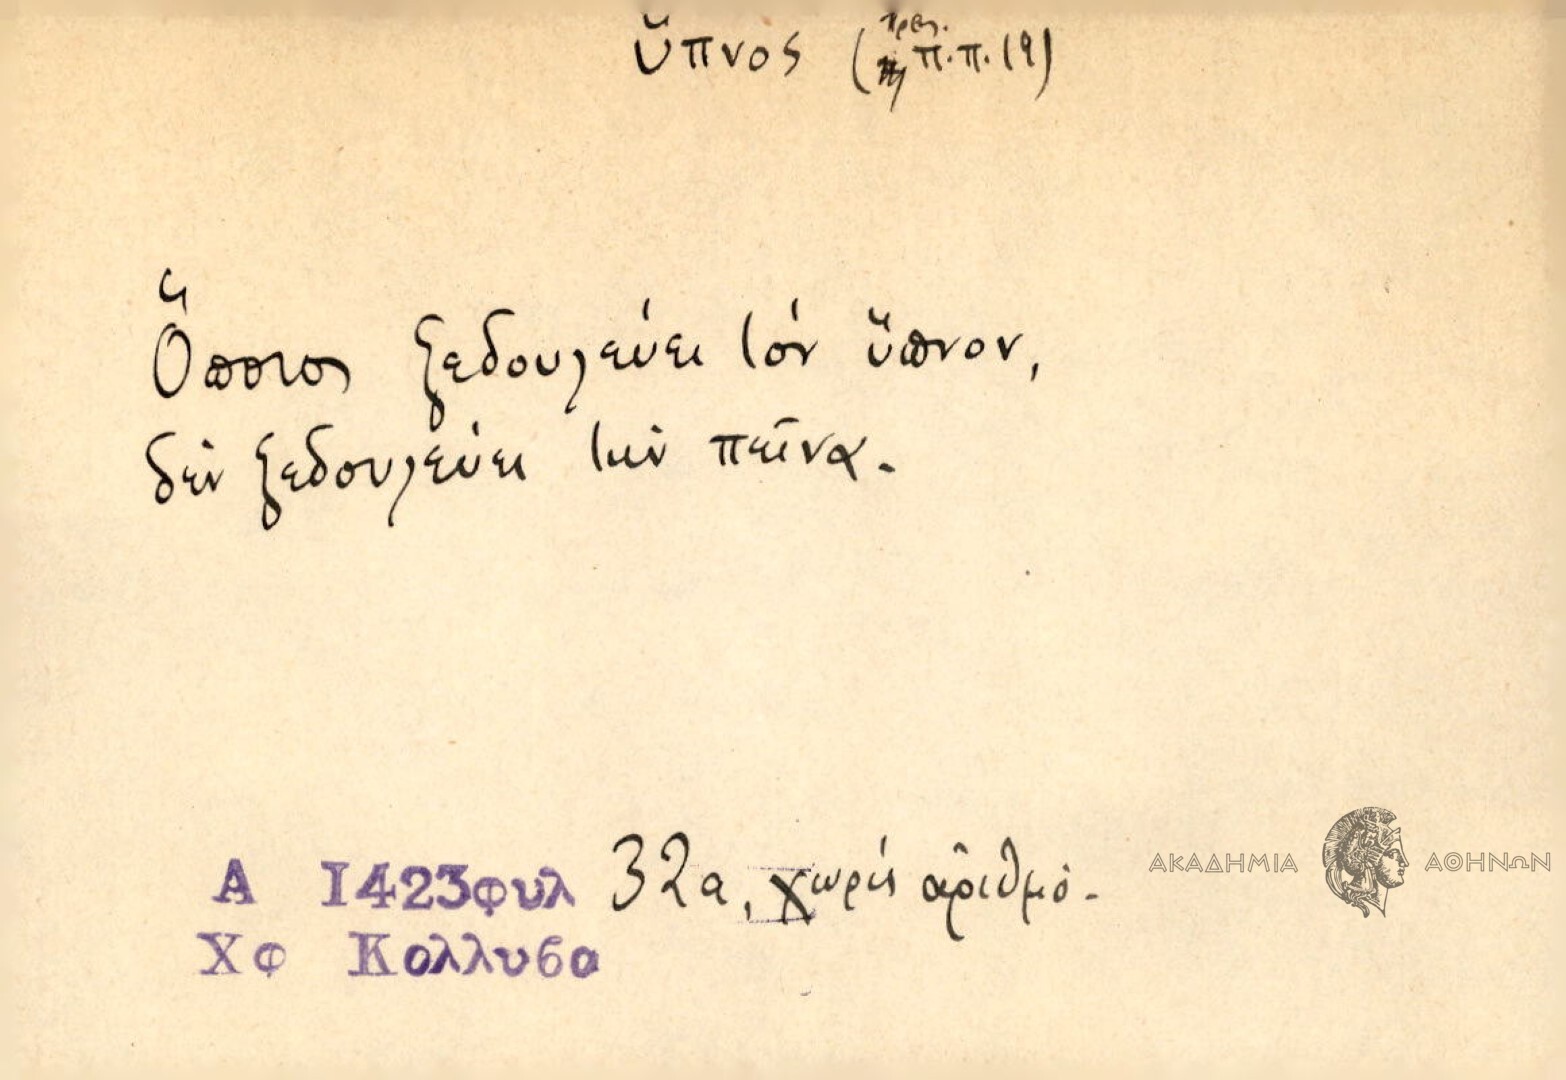 ὕπνος (Πρβ. π.π. 19)
Ὅποιος ξεδουλεύει τὸν ὕπνον,
δὲν ξεδουλεύει τὴν πεῖνα.
Α 1423φυλ 32α, χωρὶς ἀριθμό.
Χφ Κολλυβα
ΑΚΑΔΗΜΙΑ ΑΘΗΝΩΝ